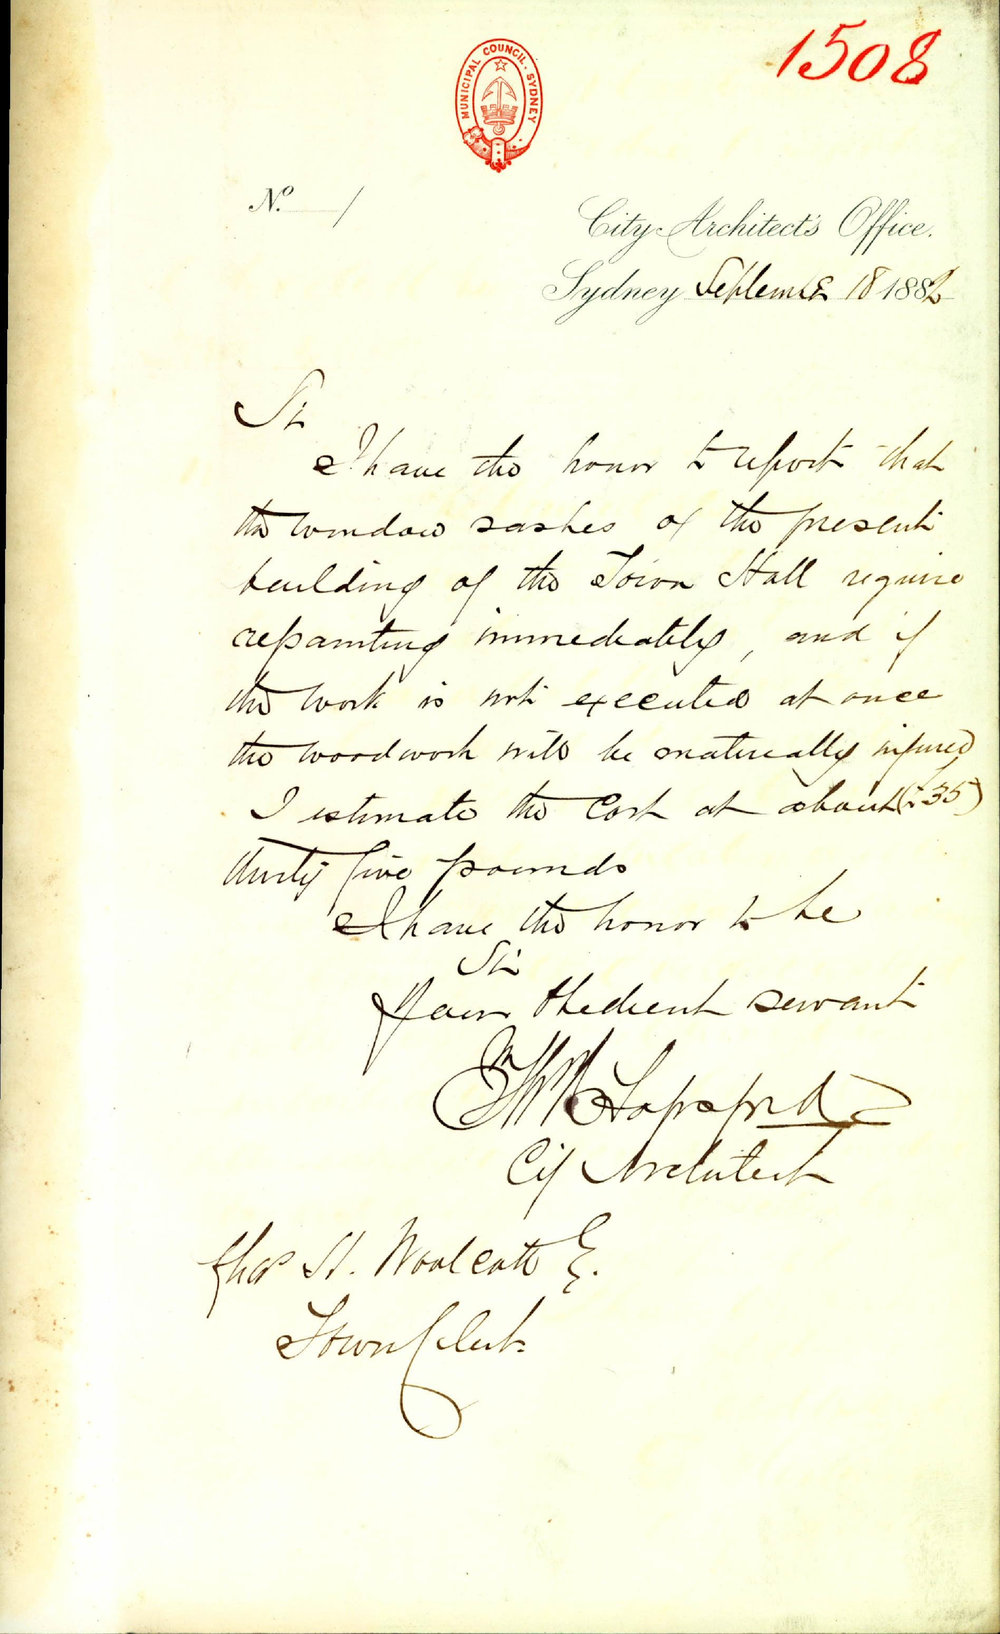 1508
MUNICIPAL COUNCIL. SYDNEY
No. /
City Architect's Office.
Sydney September 18 1882
Sir
I have the honor to report that
the window sashes of the present
building of the Town Hall require
repainting immediately, and if
the work is not executed at once
the woodwork will be materially injured
I estimate the cost at about (£35)
thirty five pounds
I have the honor to be
Sir
Your Obedient servant
Sapsford
City Architect
Chas H. Woolcott E.
Town Clerk